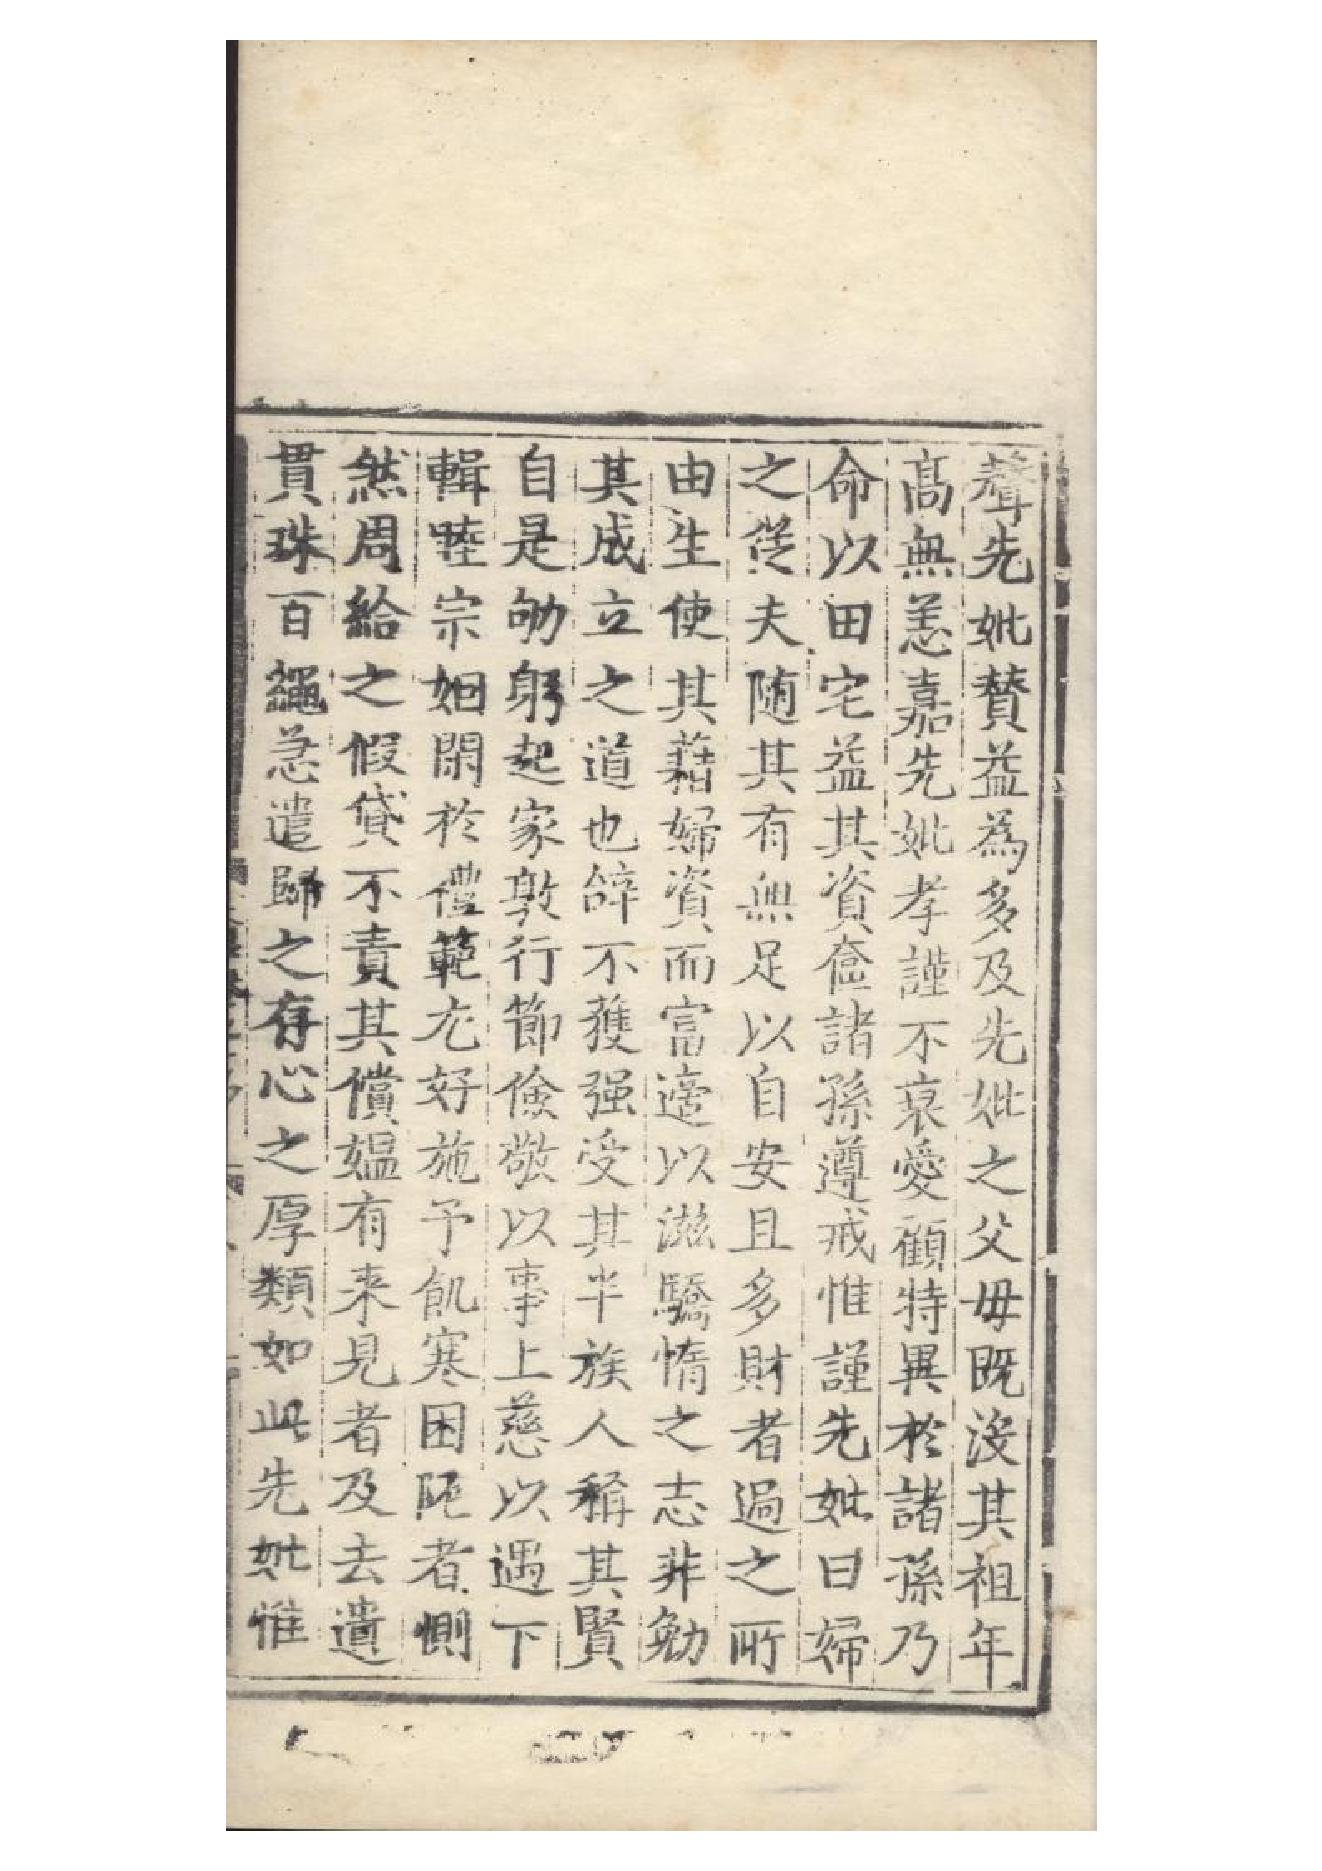 聲先妣賛益為多及先妣之父母既沒其祖年
髙無恙嘉先妣孝謹不衰愛顧特異於諸孫乃
命以田宅益其資奩諸孫遵戒惟謹先妣曰婦
之從夫随其有無足以自安且多財者過之所
由生使其藉婦資而富適以滋驕惰之志非勉
其成立之道也辝不獲强受其半族人稱其賢
自是劬躬起家敦行節儉敬以事上慈以遇下
輯睦宗姻閑於禮範尤好施予飢寒困阨者惻
然周給之假貸不責其償媼有来見者及去遺
貫珠百繩急遣歸之存心之厚類如此先妣惟